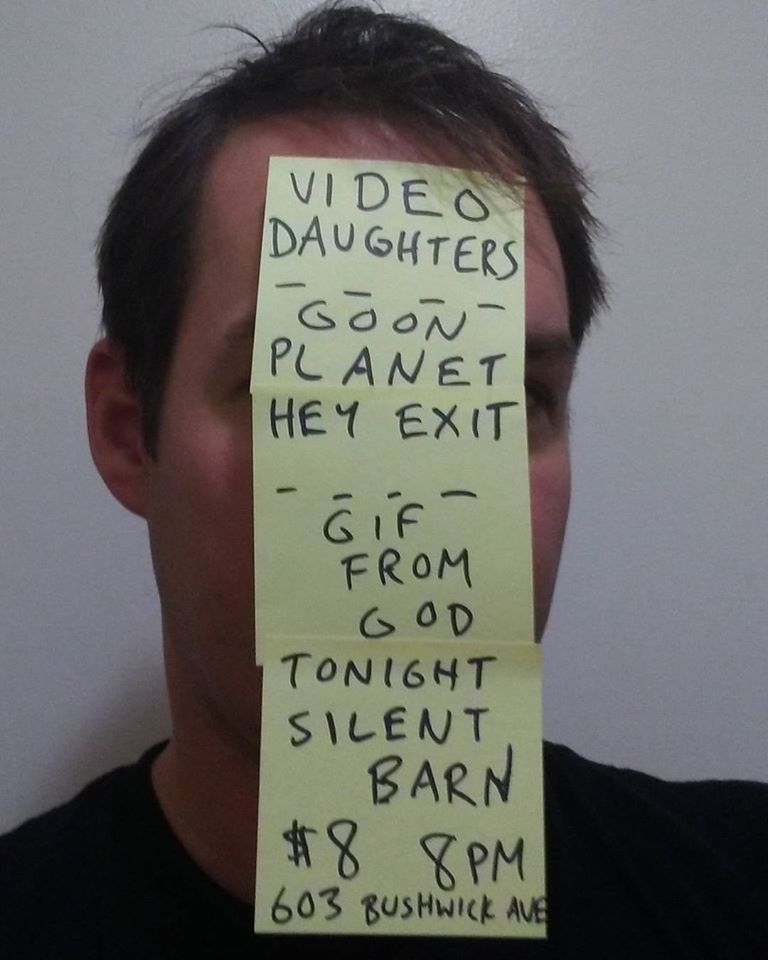 VIDEO
DAUGHTERS
- - - -
GOON
PLANET
HEY EXIT
- - - -
GIF
FROM
GOD
TONIGHT
SILENT
BARN
$8 8PM
603 BUSHWICK AVE